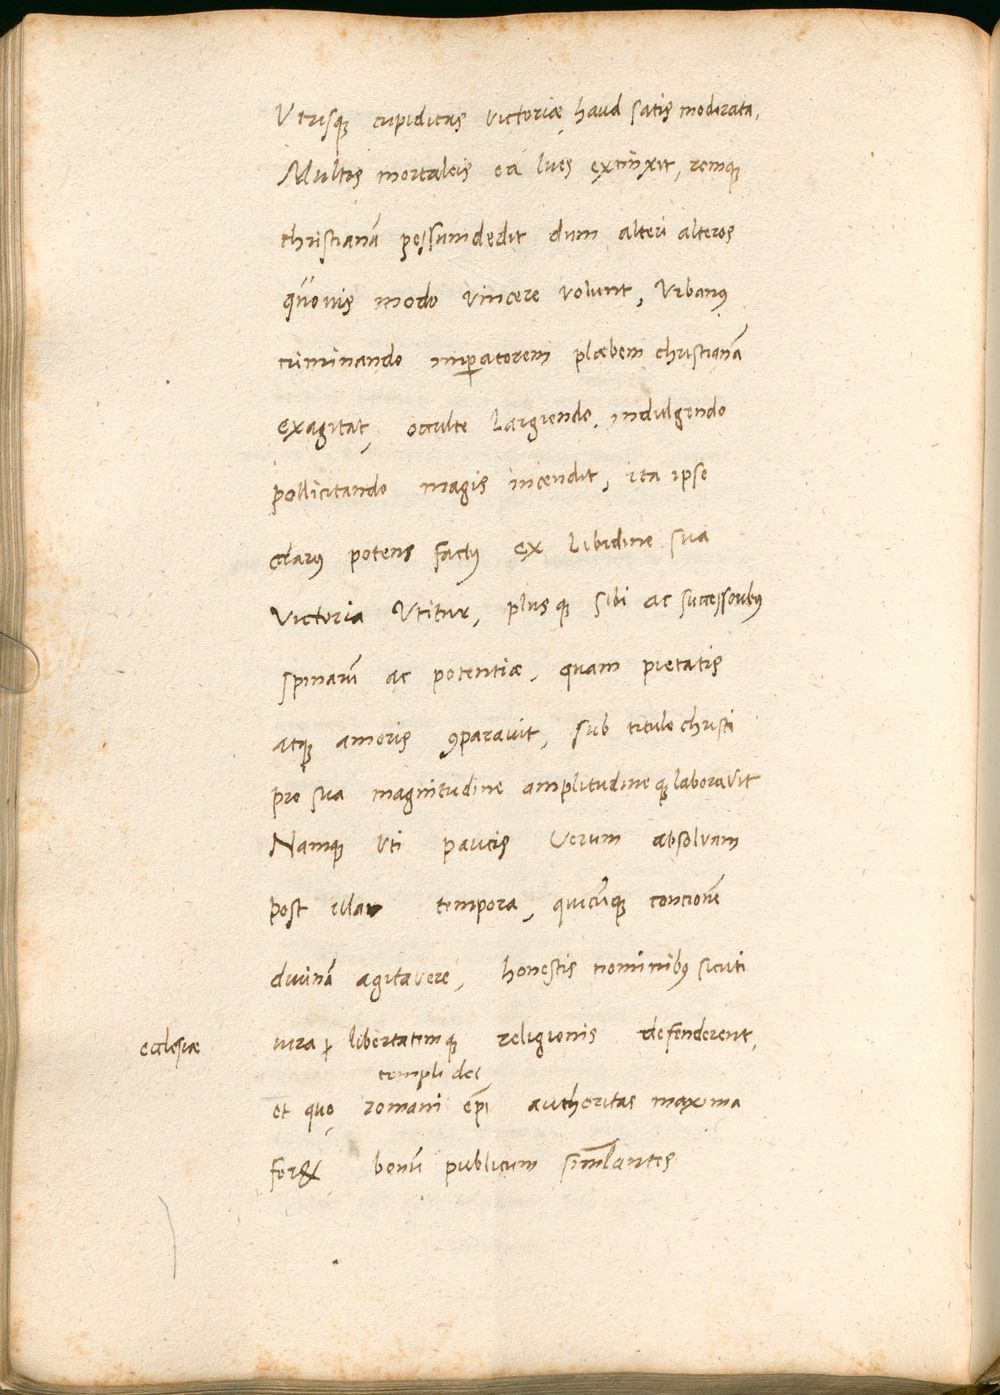 Utrisq; cupiditas victoriæ haud satis moderata.
Multos mortaleis ea lues extinxit, remq;
christianā pessumdedit dum alteri alteros
quouis modo vincere volunt, Vrbanꝰ
criminando imꝑatorem plæbem christianā
exagitat, occulte Largiendo, indulgendo
pollicitando magis incendit, ita ipse
clarꝰ potens factꝰ ex Libidine sua
victoria Vtitur, plus q; sibi ac successoribꝰ
spinarū ac potentiæ, quam pietatis
atq; amoris ꝯparauit, sub titulo christi
pro sua magnitudine amplitudineq; laborauit
Namq; vti paucis verum absoluam
post illa tempora, quicūq; concionē
diuinā agitauere, honestis nominibꝰ sicuti
ecclesiæ
iura libertatemq; religionis defenderent,
templi dei
et quo romani ep̄i authoritas maxima
foret bonū publicum simlantes